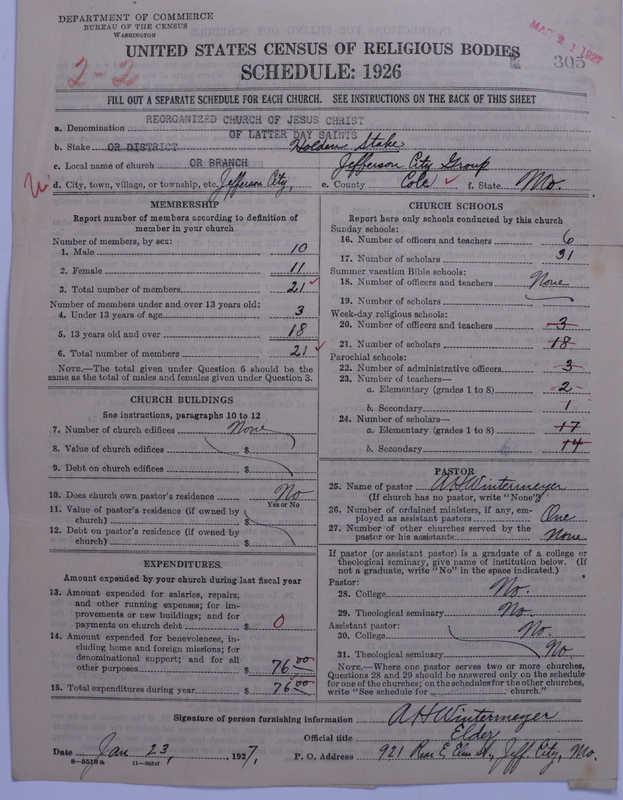 DEPARTMENT OF COMMERCE
BUREAU OF THE CENSUS
WASHINGTON
MAR 21 1927
305
UNITED STATES CENSUS OF RELIGIOUS BODIES
SCHEDULE: 1926
2-2
FILL OUT A SEPARATE SCHEDULE FOR EACH CHURCH. SEE INSTRUCTIONS ON THE BACK OF THIS SHEET
REORGANIZED CHURCH OF JESUS CHRIST
a. Denomination
OF LATTER DAY SAINTS
b. Stake OR DISTRICT Holden Stake
c. Local name of church OR BRANCH Jefferson City Group
d. City, town, village, or township, etc. Jefferson City, e. County Cole f. State Mo.
MEMBERSHIP
Report number of members according to definition of
member in your church
Number of members, by sex:
1. Male 10
2. Female 11
3. Total number of members 21
Number of members under and over 13 years old:
4. Under 13 years of age 3
5. 13 years old and over 18
6. Total number of members 21
NOTE.—The total given under Question 6 should be
same as the total of males and females given under Question 3.
CHURCH BUILDINGS
See instructions, paragraphs 10 to 12
7. Number of church edifices None
8. Value of church edifices $
9. Debt on church edifices $
10. Does church own pastor's residence No
Yes or No
11. Value of pastor's residence (if owned by
church) $
12. Debt on pastor's residence (if owned by
church) $
EXPENDITURES.
Amount expended by your church during last fiscal year
13. Amount expended for salaries, repairs,
and other running expenses; for im-
provements or new buildings; and for
payments on church debt $ 0
14. Amount expended for benevolences, in-
cluding home and foreign missions; for
denominational support; and for all
other purposes $ 76 00
15. Total expenditures during year $ 76 00
CHURCH SCHOOLS
Report here only schools conducted by this church
Sunday schools:
16. Number of officers and teachers 6
17. Number of scholars 31
Summer vacation Bible schools:
18. Number of officers and teachers None
19. Number of scholars
Week-day religious schools:
20. Number of officers and teachers 3
21. Number of scholars 18
Parochial schools:
22. Number of administrative officers 3
23. Number of teachers—
a. Elementary (grades 1 to 8) 2
b. Secondary 1
24. Number of scholars—
a. Elementary (grades 1 to 8) 17
b. Secondary 14
PASTOR
25. Name of pastor A H Wintermeyer
(If church has no pastor, write "None")
26. Number of ordained ministers, if any, em-
ployed as assistant pastors One
27. Number of other churches served by the
pastor or his assistants None
If pastor (or assistant pastor) is a graduate of a college or
theological seminary, give name of institution below. (If
not a graduate, write "No" in the space indicated.)
Pastor:
28. College No.
29. Theological seminary No.
Assistant pastor:
30. College No.
31. Theological seminary No.
NOTE.—Where one pastor serves two or more churches,
Questions 28 and 29 should be answered only on the schedule
for one of the churches; on the schedules for the other churches,
write "See schedule for church."
Signature of person furnishing information A H Wintermeyer
Official title Elder
Date Jan 23, 1927, P. O. Address 921 Rear E Elm St., Jeff. City, Mo.
8-5518a